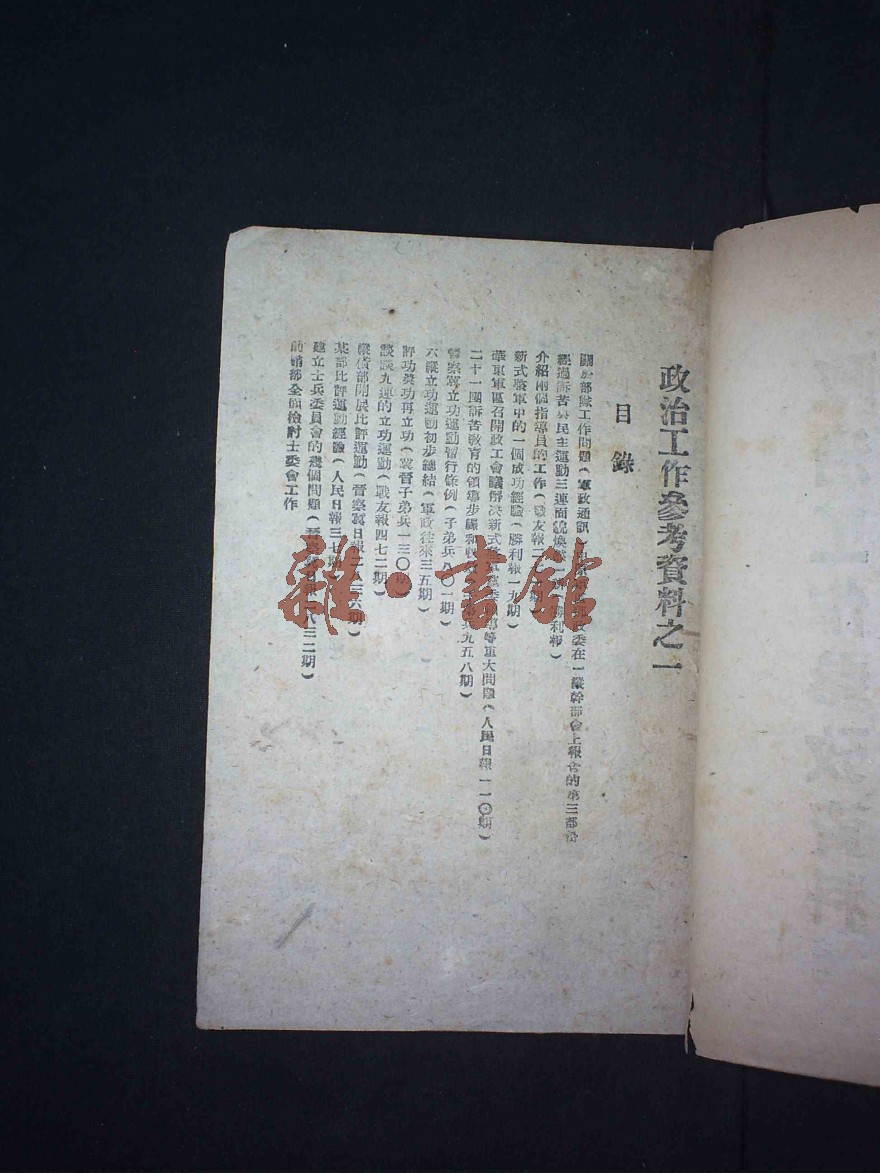 政治工作參考資料之一
目錄
關於部隊工作問題(軍政通訊 政委在一縱幹部會上報告的第三部份
經過訴苦與民主運動三連面貌煥 勝利報)
介紹兩個指導員的工作(戰友報二 期)
新式整軍中的一個成功經驗(勝利報一九期)
華東軍區召開政工會議解決新式整軍 等重大問題(人民日報一一〇期)
二十一團訴苦教育的領導步驟和收 九五八期)
晉察冀立功運動暫行條例(子弟兵八〇一期)
六縱立功運動初步總結(軍政往來三五期)
評功獎功再立功(冀晉子弟兵一三〇期)
談談九連的立功運動(戰友報四七二期)
縱偵部開展比評運動(晉察冀日報二 三六期)
某部比評運動經驗(人民日報三七 期)
建立士兵委員會的幾個問題(晉察冀日報一八三二期)
前哨部全師檢討士委會工作
雜·書館